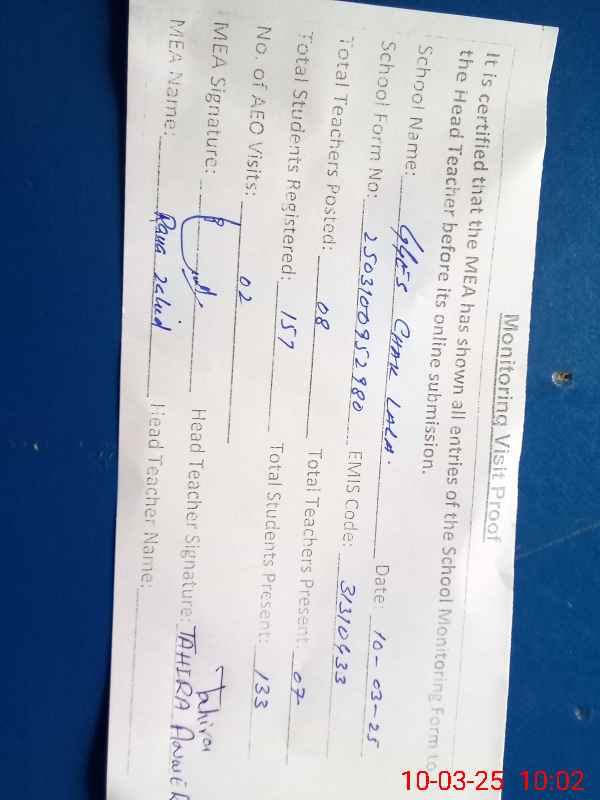 Monitoring Visit Proof
It is certified that the MEA has shown all entries of the School Monitoring Form to
the Head Teacher before its online submission.
School Name: GGES CHAK LALA. Date: 10-03-25
School Form No: 2503100952980 EMIS Code: 31310433
Total Teachers Posted: 08 Total Teachers Present: 07
Total Students Registered: 157 Total Students Present: 133
No. of AEO Visits: 02
MEA Signature: Head Teacher Signature: Tahira
TAHIRA
MEA Name: Rana Zahid Head Teacher Name:
10-03-25 10:02